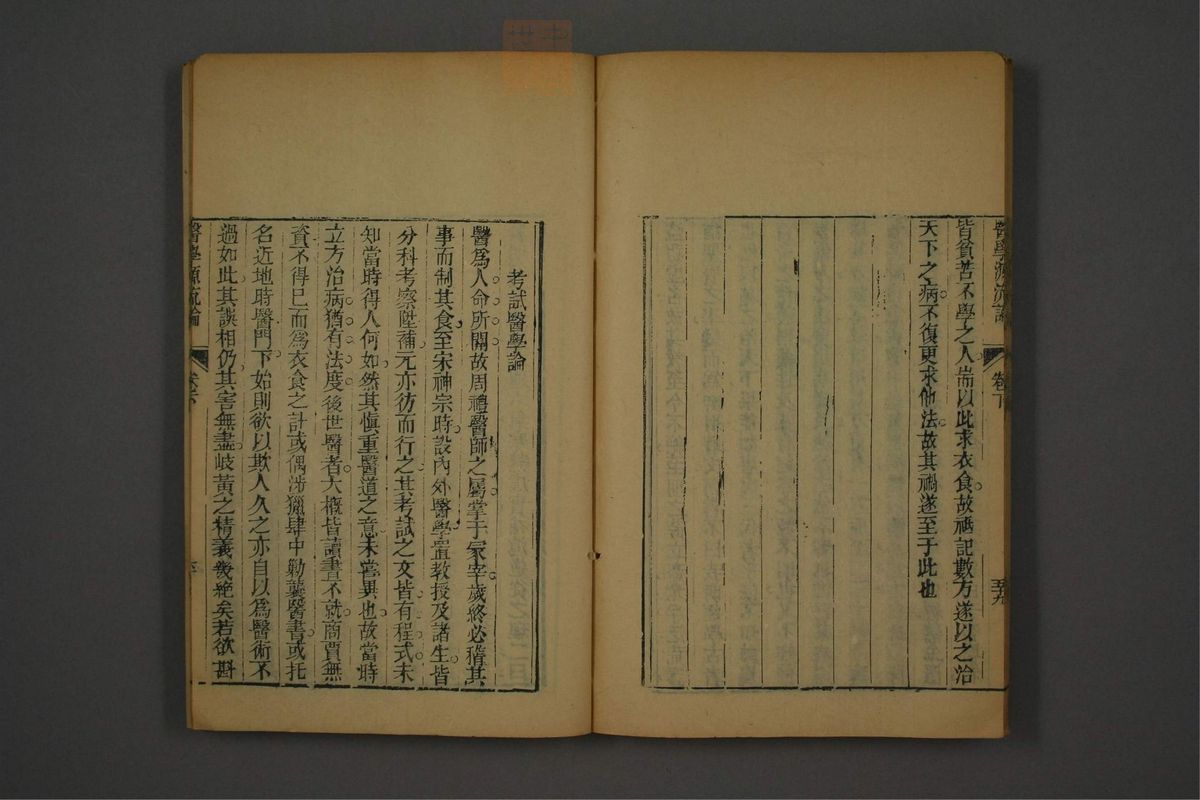 醫學源流論 卷下 五九
皆貧苦不學之人耑以此求衣食故祇記數方遂以之治
天下之病不復更求他法故其禍遂至于此也
考試醫學論
醫為人命所關故周禮醫師之屬掌于冢宰歲終必稽其
事而制其食至宋神宗時設內外醫學置教授及諸生皆
分科考察陞補元亦彷而行之其考試之文皆有程式未
知當時得人何如然其慎重醫道之意未嘗異也故當時
立方治病猶有法度後世醫者大概皆讀書不就商賈無
資不得已而為衣食之計或偶涉獵肆中勦襲醫書或托
名近地時醫門下始則欲以欺人久之亦自以為醫術不
過如此其誤相仍其害無盡岐黃之精義幾絕矣若欲斟
醫學源流論